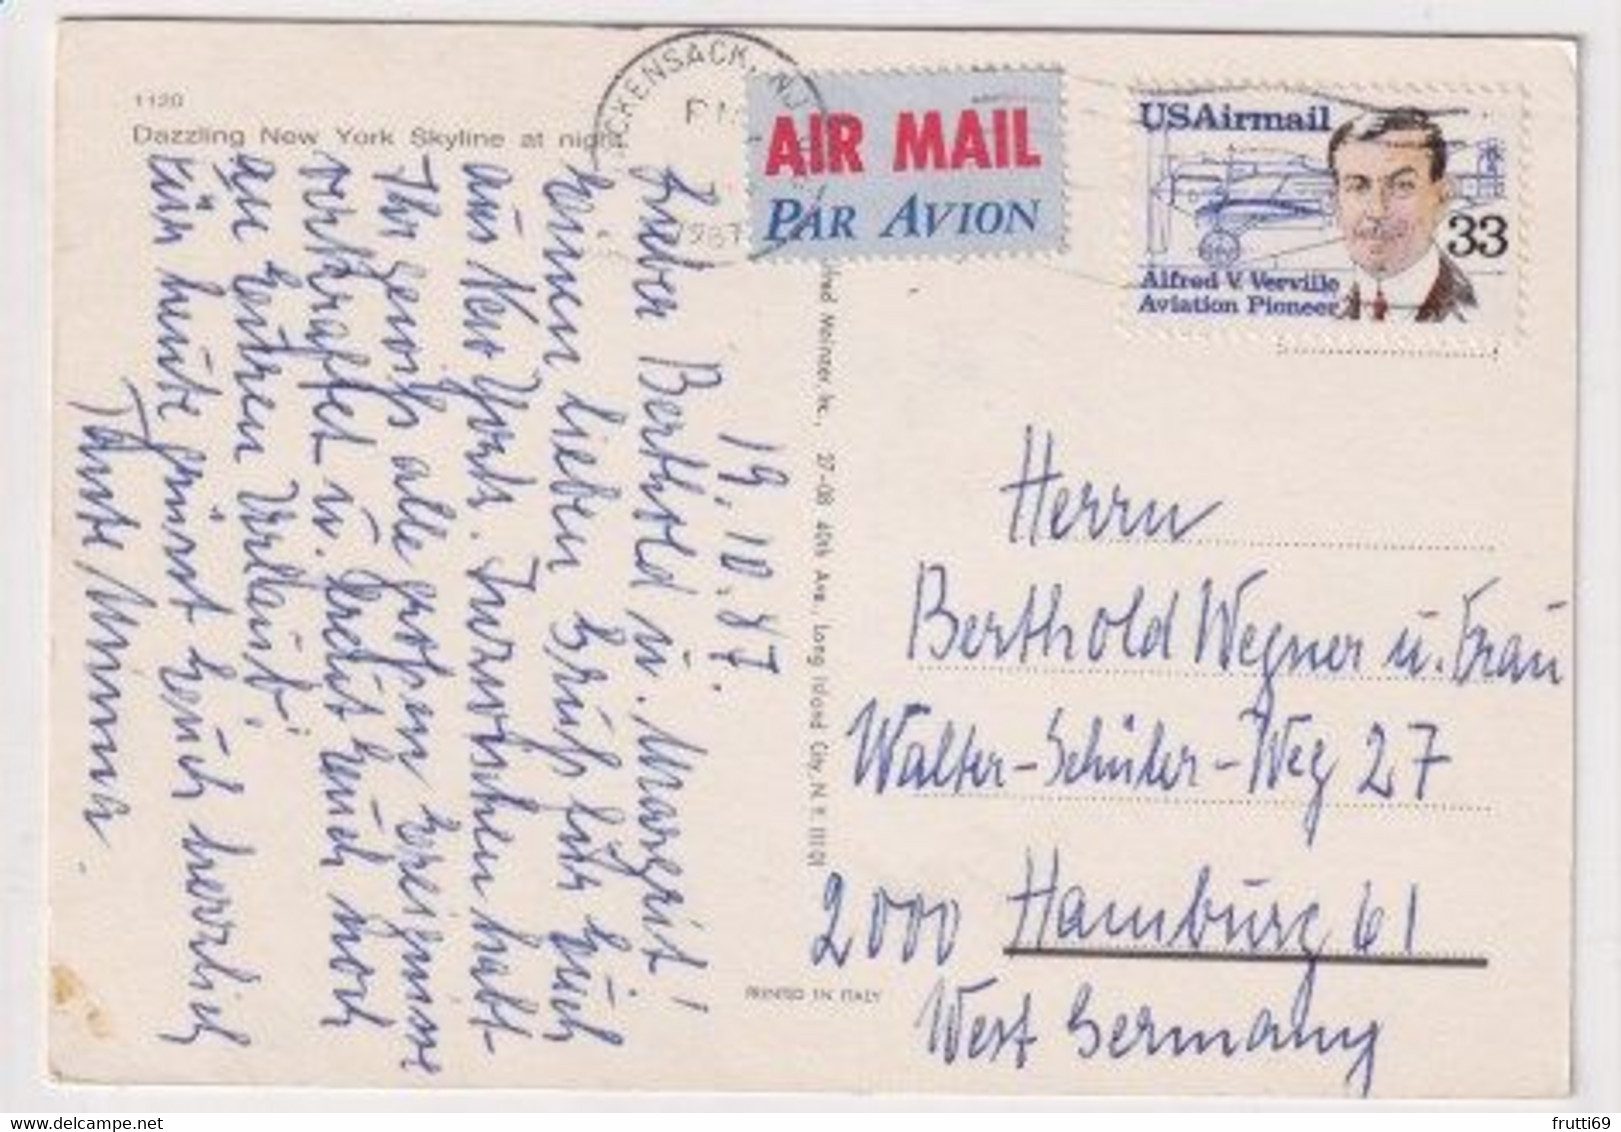 1120
Dazzling New York Skyline at night.
HACKENSACK, NJ
PM
1987
AIR MAIL
PAR AVION
USAirmail
33
Alfred V. Verville
Aviation Pioneer
19.10.87.
Lieber Berthold u. Margrit!
Einen lieben Gruß für Euch
aus New York. Inzwischen habt
Ihr gewiß alle großen Ereignisse
verkraftet u. freut Euch noch
an Eurem Urlaub.
Für heute grüßt Euch herzlich
Tante
Alfred Mainzer, Inc., 27-08 40th Ave., Long Island City, N.Y. 11101
PRINTED IN ITALY
Herrn
Berthold Wegner u. Frau
Walter-Schüler-Weg 27
2000 Hamburg 61
West Germany
frutti69